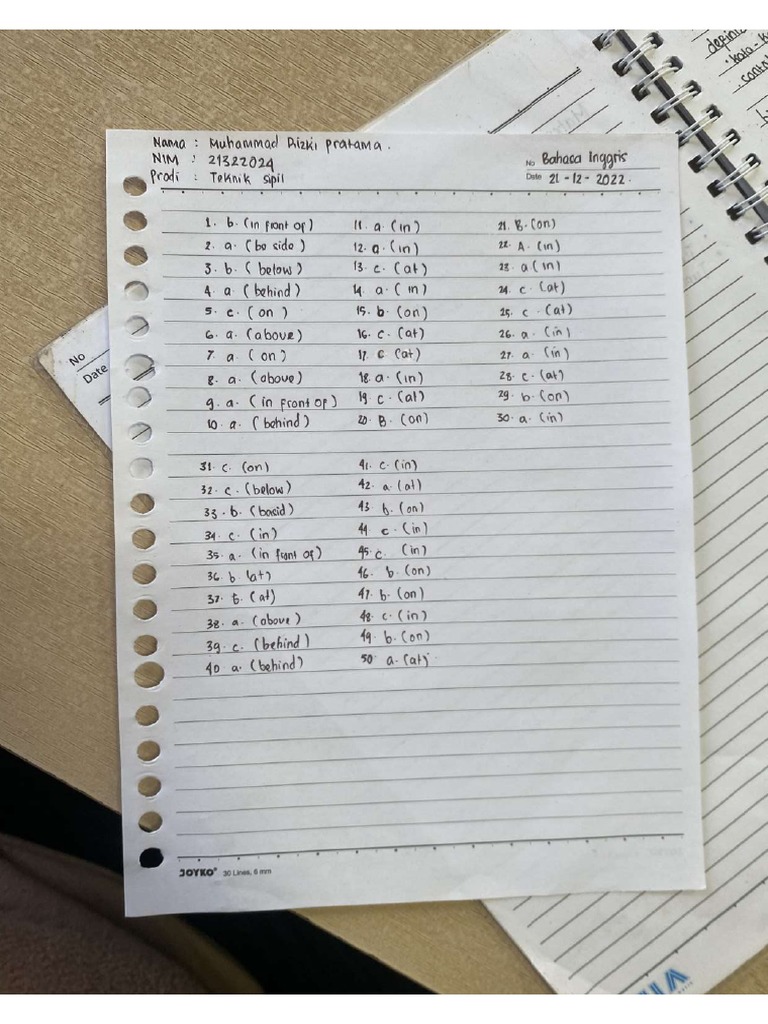 Nama : Muhammad Rizki Pratama.
NIM : 21322024
Prodi : Teknik Sipil
No Bahasa Inggris
Date 21-12-2022.
1. b. (in front of) 11. a. (in) 21. B. (on)
2. a. (be side) 12. a. (in) 22. A. (in)
3. b. (below) 13. c. (at) 23. a (in)
4. a. (behind) 14. a. (in) 24. c. (at)
5. c. (on) 15. b (on) 25. c. (at)
6. a. (above) 16. c. (at) 26. a. (in)
7. a. (on) 17. c (at) 27. a. (in)
8. a. (above) 18. a. (in) 28. c. (at)
9. a. (in front of) 19. c. (at) 29. b. (on)
10. a. (behind) 20. B. (on) 30. a. (in)
31. c. (on) 41. c. (in)
32. c. (below) 42. a. (at)
33. b. (basid) 43. b. (on)
34. c. (in) 44. c. (in)
35. a. (in front of) 45. c. (in)
36. b. (at) 46. b. (on)
37. b. (at) 47. b. (on)
38. a. (above) 48. c. (in)
39. c. (behind) 49. b. (on)
40 a. (behind) 50. a. (at).
JOYKO 30 Lines, 6 mm
No
Date